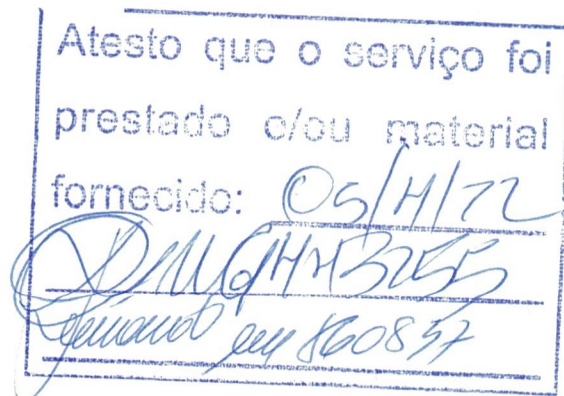 Atesto que o serviço foi
prestado e/ou material
fornecido: 05/11/22
860857